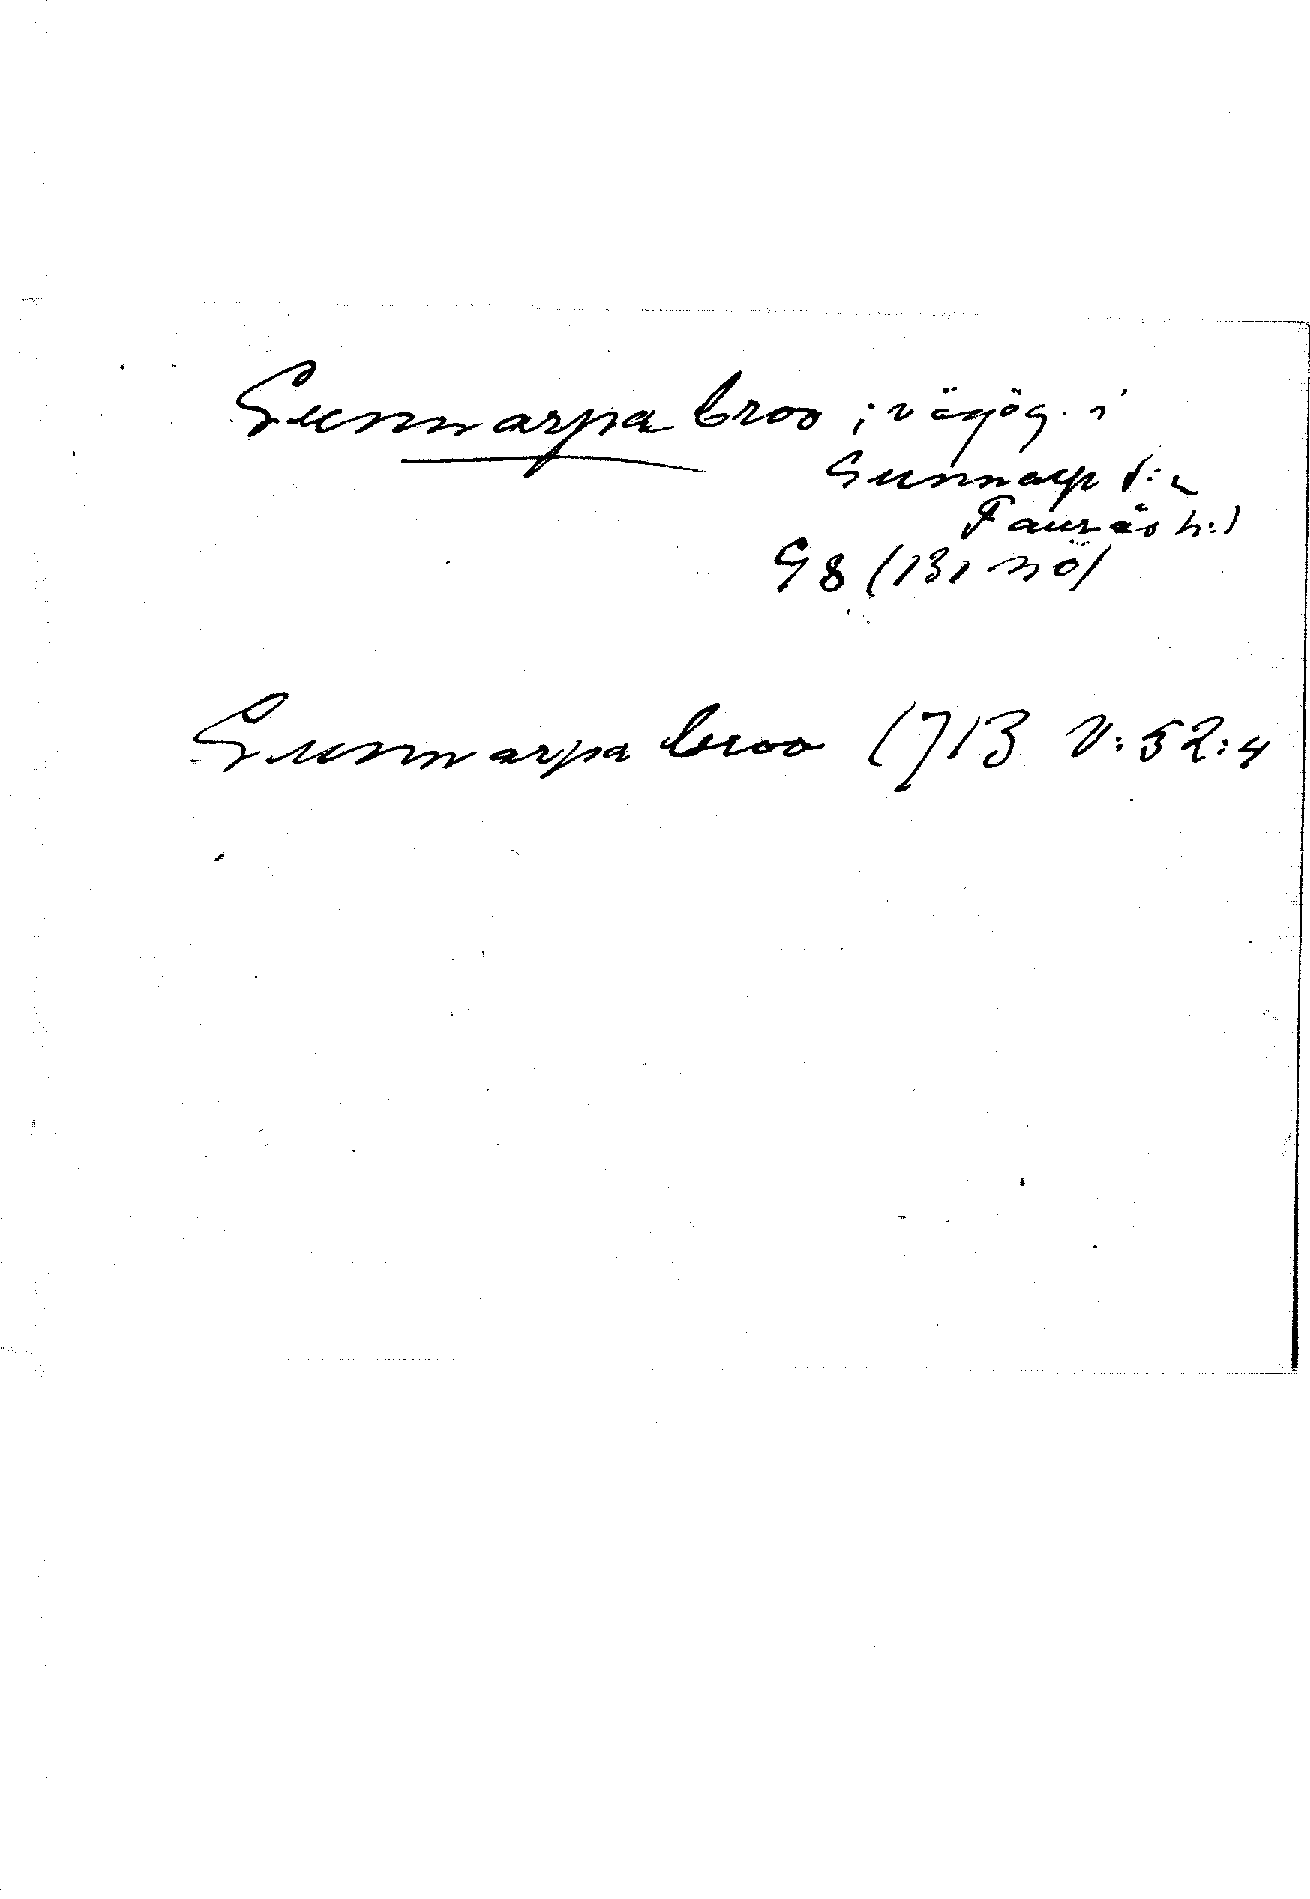 Gunnarpa broo ; vägög. i
Gunnarp s:n
Faurås h:d
G8 (131 nö)
Gunnarpa broo 1713 V:52:4